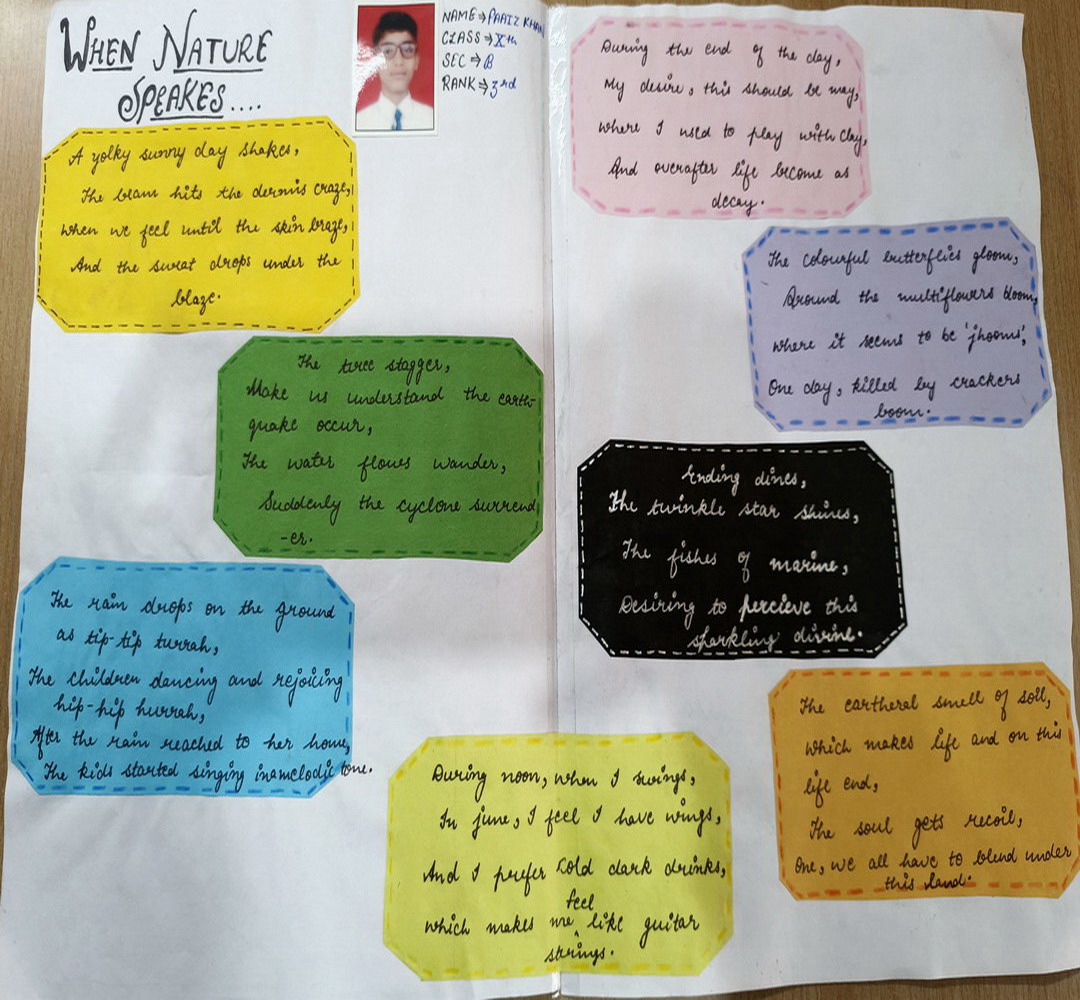 WHEN NATURE
SPEAKES....
NAME ⇒ FAAIZ KHAN
CLASS ⇒ Xth
SEC ⇒ B
RANK ⇒ 3rd
A yolky sunny day shakes,
The beam hits the dermis craze,
when we feel until the skin braze,
And the sweat drops under the
blaze.
The tree stagger,
Make us understand the earth-
quake occur,
The water flows wander,
Suddenly the cyclone surrend
-er.
The rain drops on the ground
as tip-tip turrah,
The children dancing and rejoicing
hip-hip hurrah,
After the rain reached to her home,
The kids started singing in a melodic tone.
During noon, when I swings,
In june, I feel I have wings,
And I prefer cold dark drinks,
which makes me feel like guitar
strings.
During the end of the day,
My desire, this should be may,
where I used to play with clay,
And overafter life become as
decay.
The colourful butterflies gloom,
Around the multiflowers bloom,
where it seems to be 'jhooms',
One day, killed by crackers
boom.
Ending dines,
The twinkle star shines,
The fishes of marine,
Desiring to percieve this
sparkling divine.
The eartheral smell of soil,
which makes life and on this
life end,
The soul gets recoil,
One, we all have to blend under
this land.